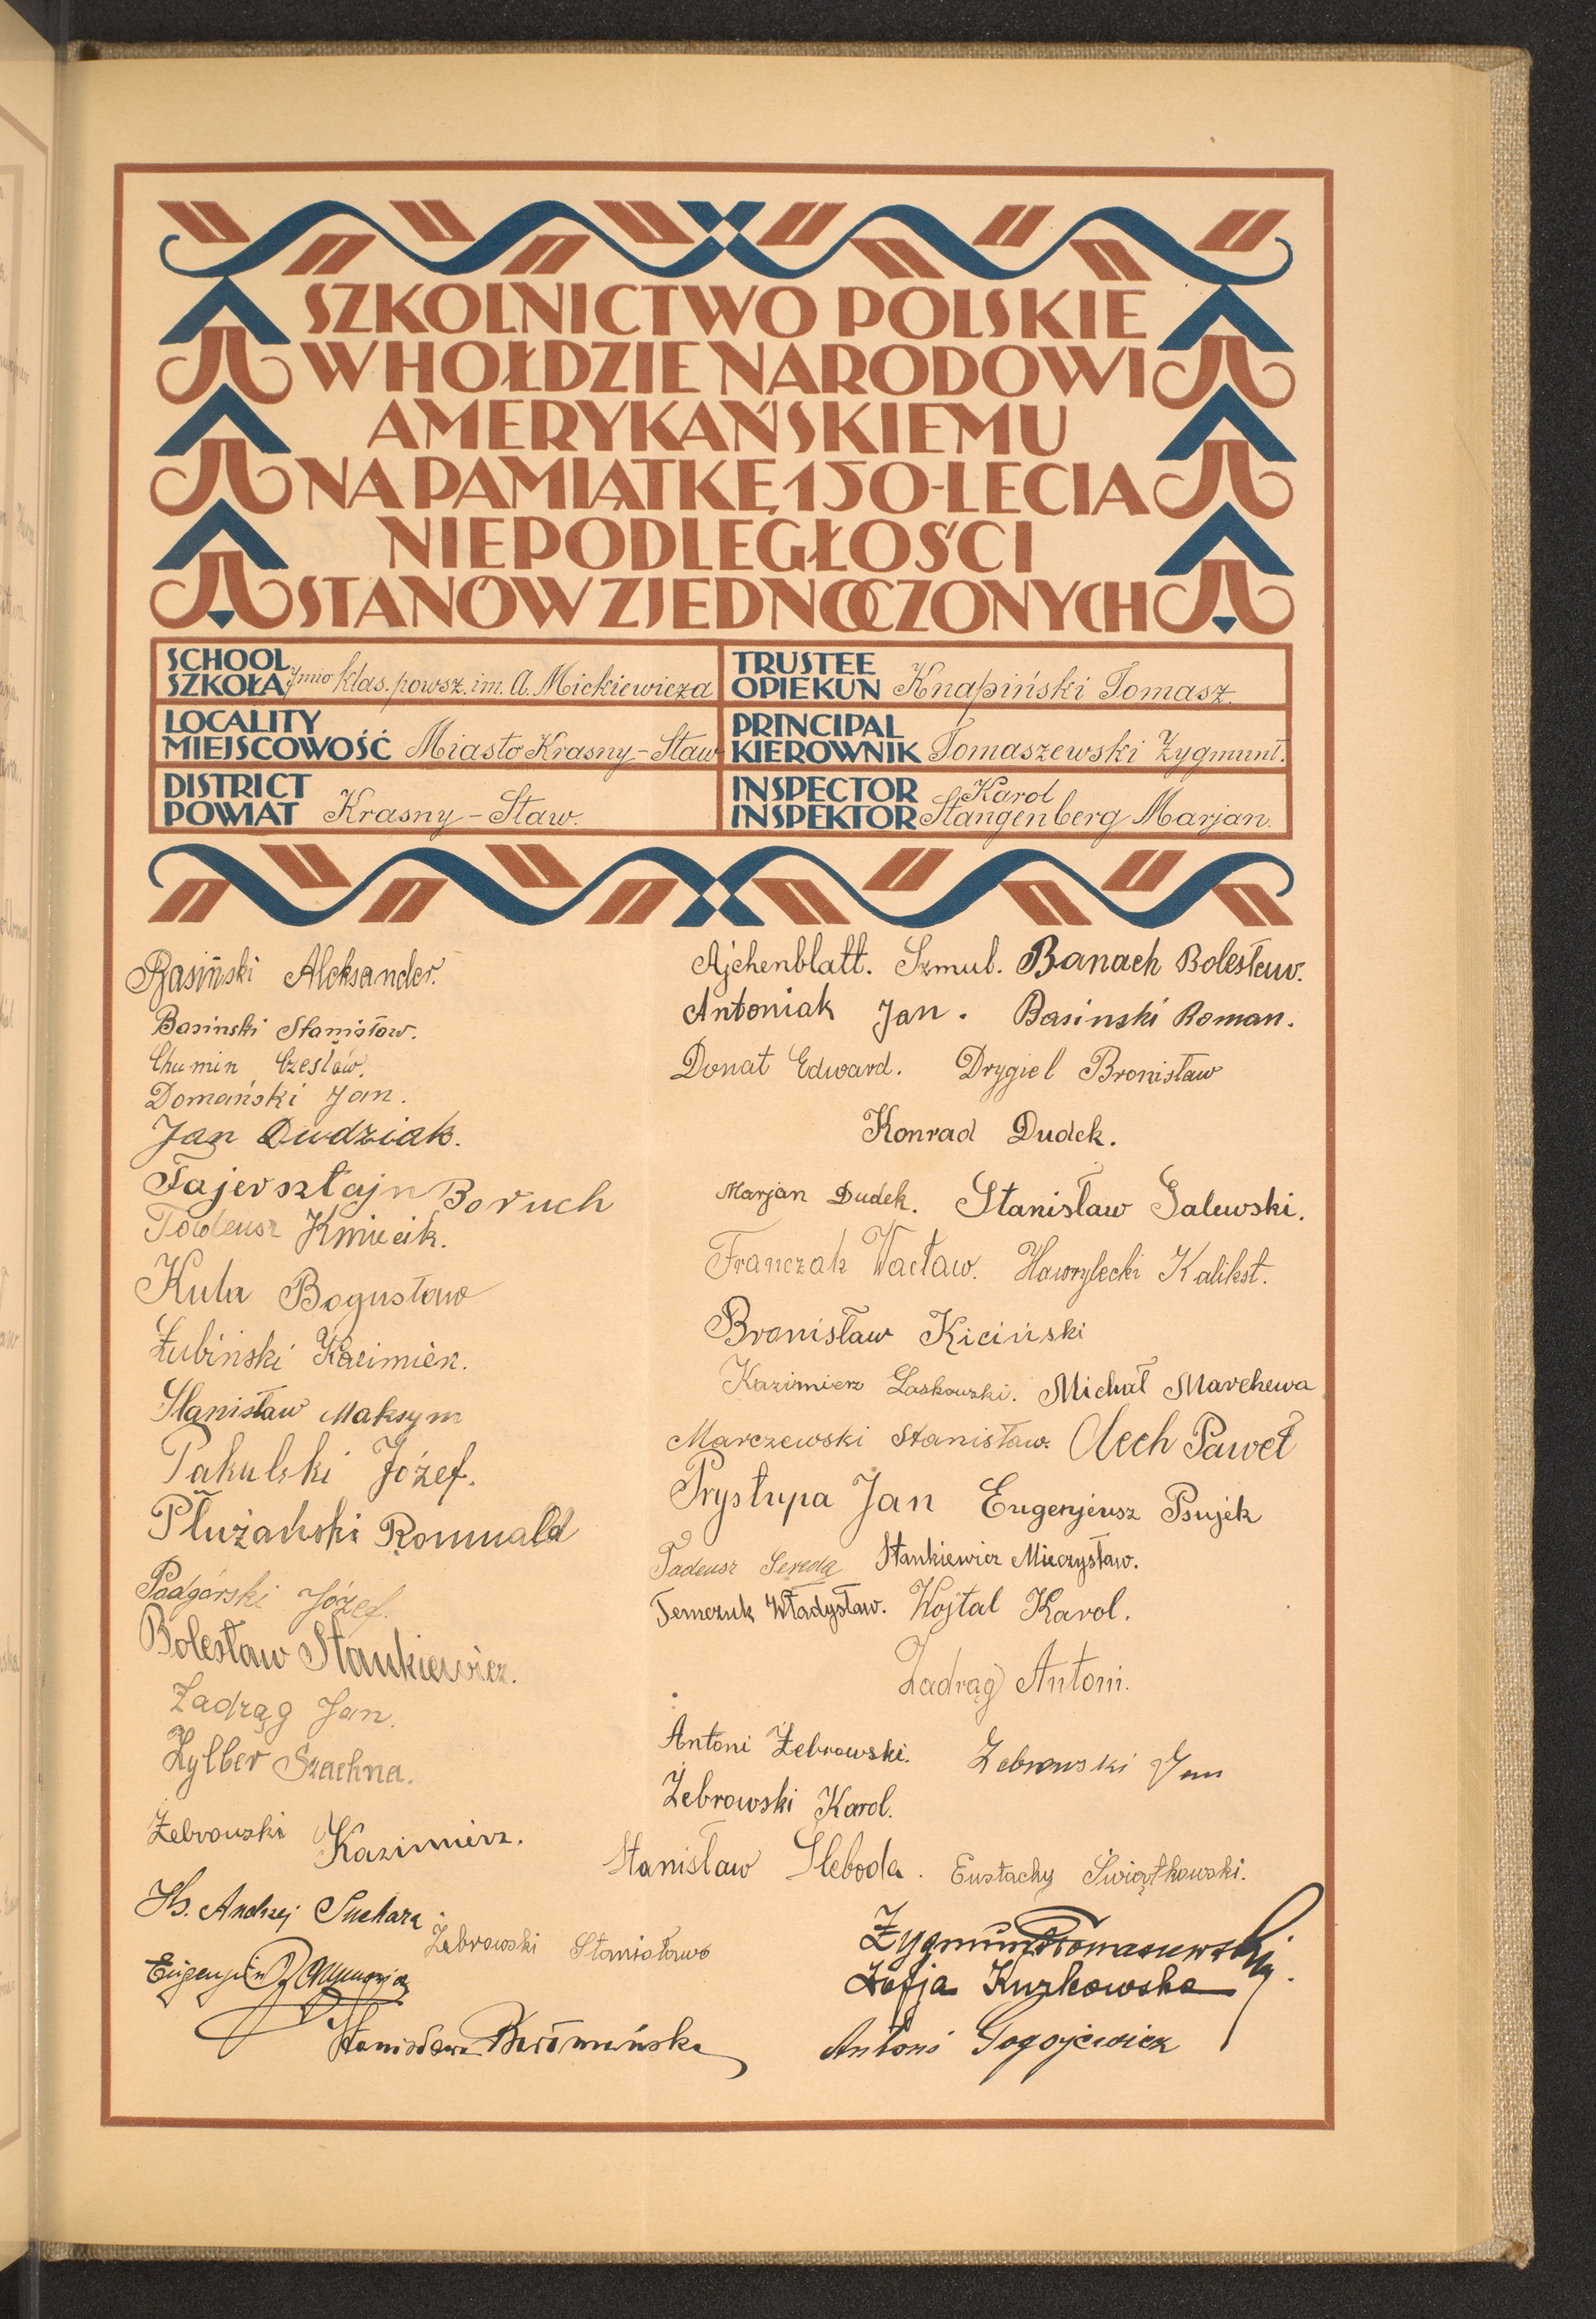 SZKOLNICTWO POLSKIE
W HOŁDZIE NARODOWI
AMERYKAŃSKIEMU
NA PAMIĄTKĘ 150-LECIA
NIEPODLEGŁOŚCI
STANÓW ZJEDNOCZONYCH
SCHOOL
SZKOŁA 7mio klas. powsz. im. A. Mickiewicza
TRUSTEE
OPIEKUN Knapiński Tomasz.
LOCALITY
MIEJSCOWOŚĆ Miasto Krasny-Staw
PRINCIPAL
KIEROWNIK Tomaszewski Zygmunt.
DISTRICT
POWIAT Krasny-Staw.
INSPECTOR Karol
INSPEKTOR Stangenberg Marjan.
Basiński Aleksander.
Basinski Stanisław.
Chumin Czesław.
Domański Jan.
Jan Dudziak.
Fajersztajn Boruch
Tadeusz Kmiecik.
Kula Bogusław
Łubiński Kazimierz.
Stanisław Maksym
Pakulski Józef.
Płużański Romuald
Podgórski Józef.
Bolesław Stankiewicz.
Zadrąg Jan.
Zylber Szachna.
Żebrowski Kazimierz.
Ks. Andrzej Suchara
Żebrowski Stanisław
Stanisława
Ajchenblatt. Szmul. Banach Bolesław.
Antoniak Jan. Basinski Roman.
Donat Edward. Drygiel Bronisław
Konrad Dudek.
Marjan Dudek. Stanisław Galewski.
Franczak Wacław. Hawrylecki Kalikst.
Bronisław Kiciński
Kazimierz Laskowski. Michał Marchewa
Marczewski Stanisław. Olech Paweł
Prystupa Jan Eugenjeusz Psujek
Tadeusz Sereda Stankiewicz Mieczysław.
Temczuk Władysław. Wojtal Karol.
Zadrąg Antoni.
Antoni Żebrowski. Żebrowski Jan
Żebrowski Karol.
Stanisław Śleboda. Eustachy Świątkowski.
Zygmunt Tomaszewski
Zofja Kurkowska
Antoni Gogojewicz